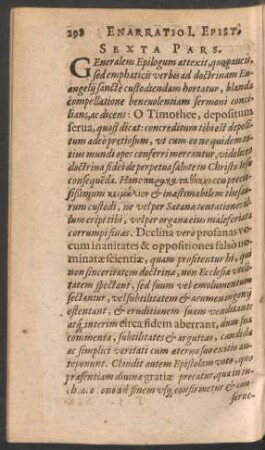 298 ENARRATIO I. EPIST.
SEXTA PARS.
GEneralem Epilogum attexit, quo paucis,
sed emphaticis verbis ad doctrinam Eu-
angelij sanctè custodiendam hortatur, blanda
compellatione beneuolentiam sermoni conci-
lians, ac dicens: O Timothee, depositum
serua, quasi dicat: concreditum tibi est deposi-
tum adeo pretiosum, vt cum eo ne quidem to-
tius mundi opes conferri mereantur, videlicet
doctrina fidei de perpetua salute in Christo Iesu
consequenda. Hanc ceu preci-
osissimum & inastimabilem thesau-
rum custodi, ne vel per Satanæ tentationes il-
lum eripi tibi, vel per organa eius malesferiata
corrumpi sinas. Declina verò profanas vo-
cum inanitates & oppositiones falsò no-
minatæ scientiæ, quam profitentur hi, qui
non sinceritatem doctrinæ, non Ecclesiæ vtili-
tatem spectant, sed suum vel emolumentum
sectantur, vel subtilitatem & acumen ingenij
ostentant, & eruditionem suam venditant:
atq; interim circa fidem aberrant, dum sua
commenta, subtilitates & argutias, candida
ac simplici veritati cum æterno suo exitio an-
teponunt. Claudit autem Epistolam voto, quo
præsentiam diuinæ gratiæ precatur, qua in
ad finem vsq; confirmetur & con-
serue-